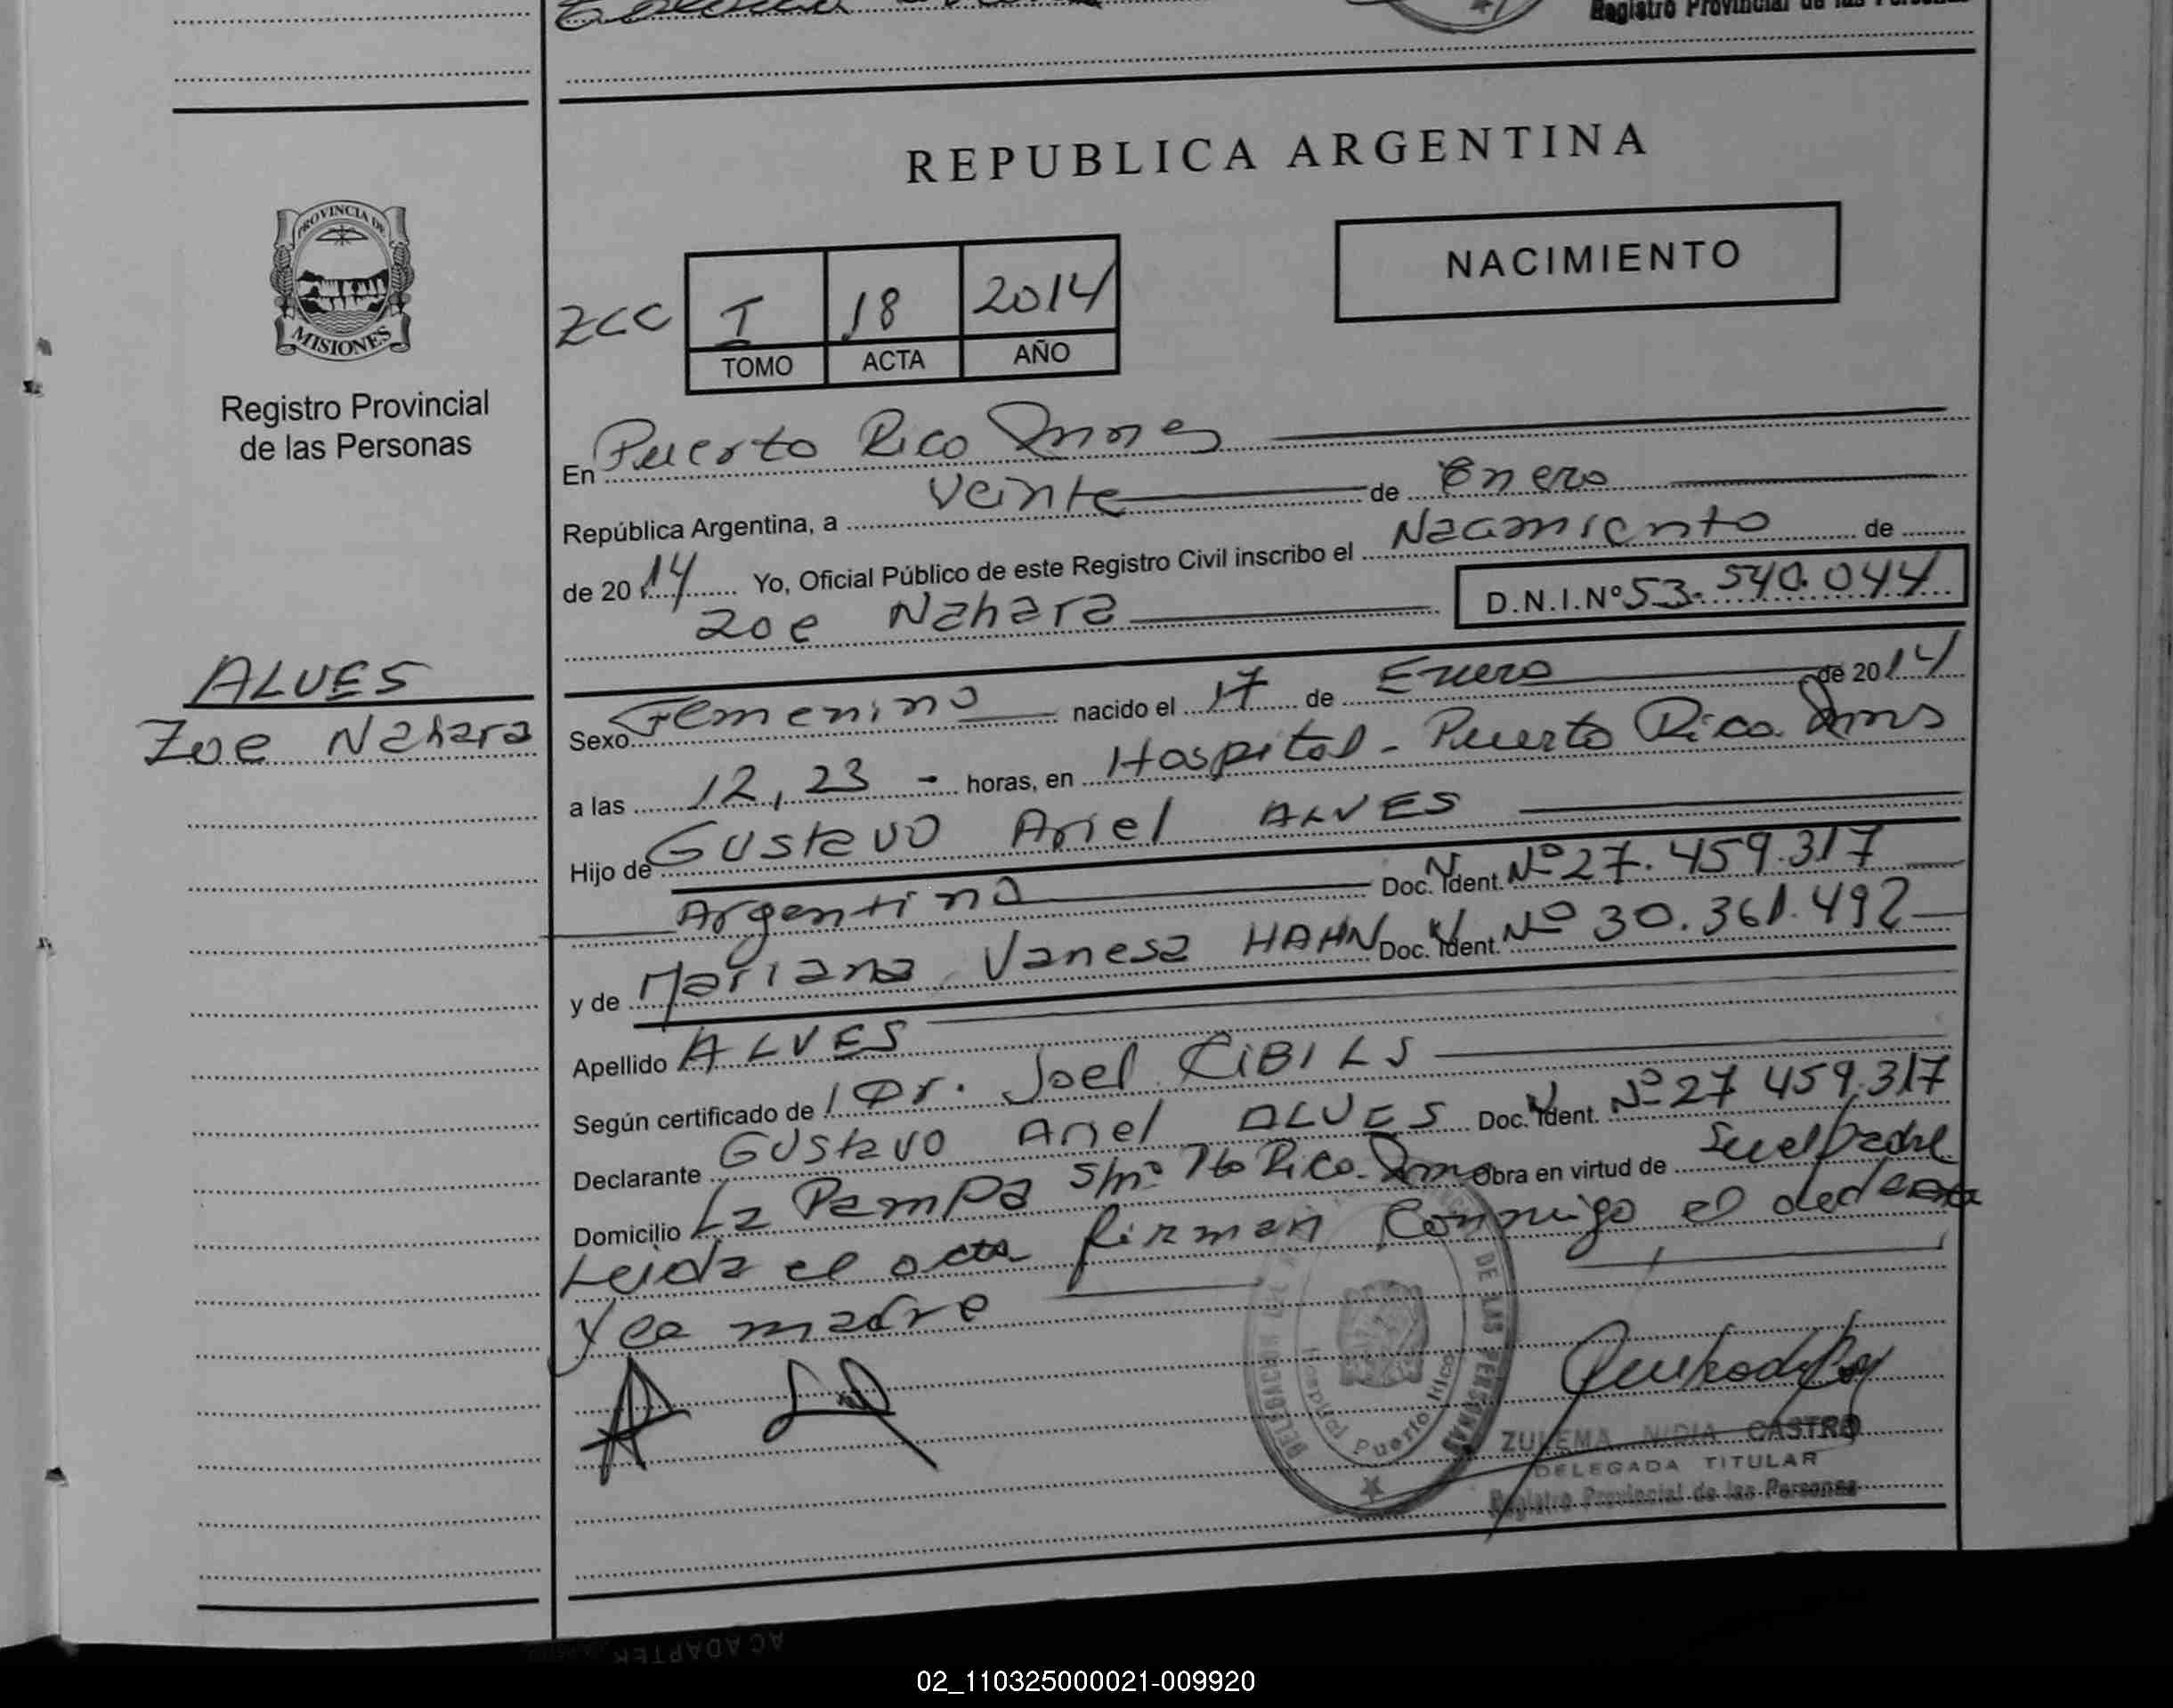 Registro Provincial de las Personas
REPUBLICA ARGENTINA
PROVINCIA DE
MISIONES
Registro Provincial
de las Personas
NACIMIENTO
ZCC I 18 2014
TOMO ACTA AÑO
En Puerto Rico Mnes
República Argentina, a veinte de Enero
de 2014 Yo, Oficial Público de este Registro Civil inscribo el Nacimiento de
Zoe Nahara D.N.I.Nº 53.540.044
ALVES
Zoe Nahara
Sexo Femenino nacido el 17 de Enero de 2014
a las 12,23 - horas, en Hospital - Puerto Rico Mns
Hijo de Gustavo Ariel ALVES
Argentino Doc. N. Ident. Nº 27.459.317
y de Mariana Vanesa HAHN Doc. N. Ident. Nº 30.361.492
Apellido ALVES
Según certificado de Dr. Joel CIBILS
Declarante Gustavo Ariel ALVES Doc. N. Ident. Nº 27 459.317
Domicilio La Pampa s/nº Pto Rico. Obra en virtud de Ser el padre
Leida el acta firman conmigo el declarante
y la madre
DELEGACION DE LAS PERSONAS
Hospital Puerto Rico
ZULEMA NIDIA CASTRO
DELEGADA TITULAR
Registro Provincial de las Personas
AC ADAPTER
02_110325000021-009920